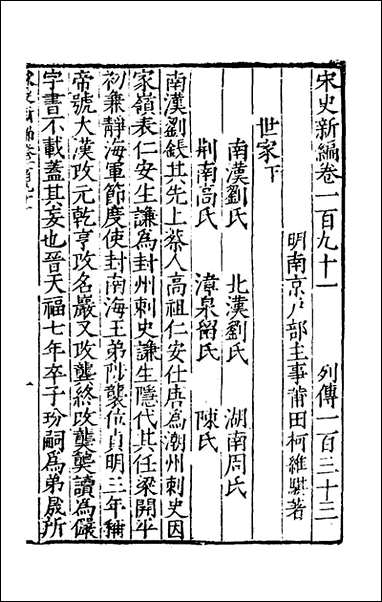 宋史新編卷一百九十一　列傳一百三十三
明南京戶部主事莆田柯維騏著
世家下
南漢劉氏　北漢劉氏　湖南周氏
荆南高氏　漳泉留氏　陳氏
南漢劉鋹其先上蔡人高祖仁安仕唐為潮州刺史因
家嶺表仁安生謙為封州刺史謙生隱代其任梁開平
初兼靜海軍節度使封南海王弟陟襲位貞明三年稱
帝號大漢改元乾亨改名巖又改龔終改龑龑讀為儼
字書不載蓋其妄也晉天福七年卒子玢嗣為弟晟所